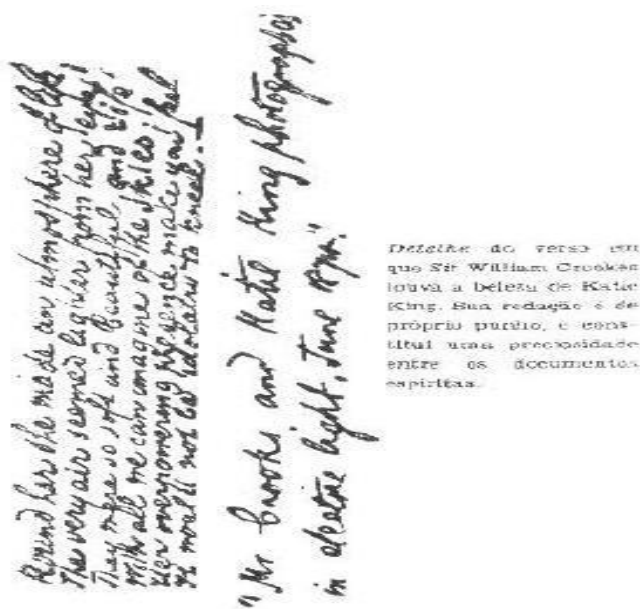 Round her she made an atmosphere of life
The very air seemed lighter from her eyes;
They were so soft and beautiful and rife
With all we can imagine of the skies;
Her overpowering presence make you feel
It would not be idolatry to kneel.—
"Mr Crooks and Katie King photographed
in electric light, June
Detalhe do verso em
que Sir William Crookes
louva a beleza de Katie
King. Sua redação é de
próprio punho, e cons-
titui uma preciosidade
entre os documentos
espíritas.